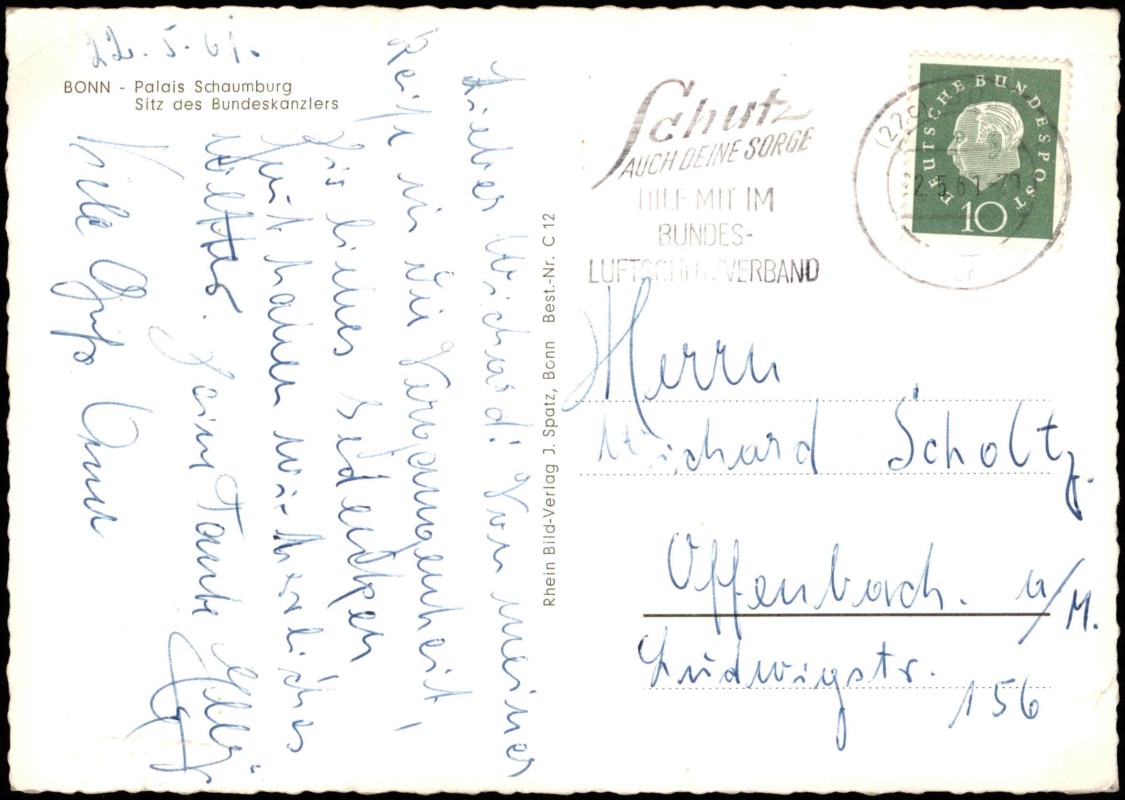 22.5.61.
BONN - Palais Schaumburg
Sitz des Bundeskanzlers
Lieber Richard! Von meiner
Reise in die Vergangenheit,
Dir liebes Gedenken
Heut haben wir herrliches
Wetter. Deine Tante
Viele Grüße Anne
Rhein Bild-Verlag J. Spatz, Bonn Best.-Nr. C 12
Schutz
AUCH DEINE SORGE
HILF MIT IM
BUNDES-
LUFTSCHUTZVERBAND
DEUTSCHE BUNDESPOST
10
Herrn
Richard Scholtz.
Offenbach. a/M.
Ludwigstr.
156